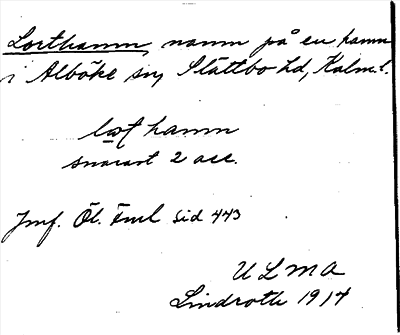 Lorthamn, namn på en hamn
i Alböke sn, Slättbo hd, Kalm. l.
hamn
snarast 2 acc.
Jmf. Öl. Fml sid 443
ULMA
Lindroth 1914